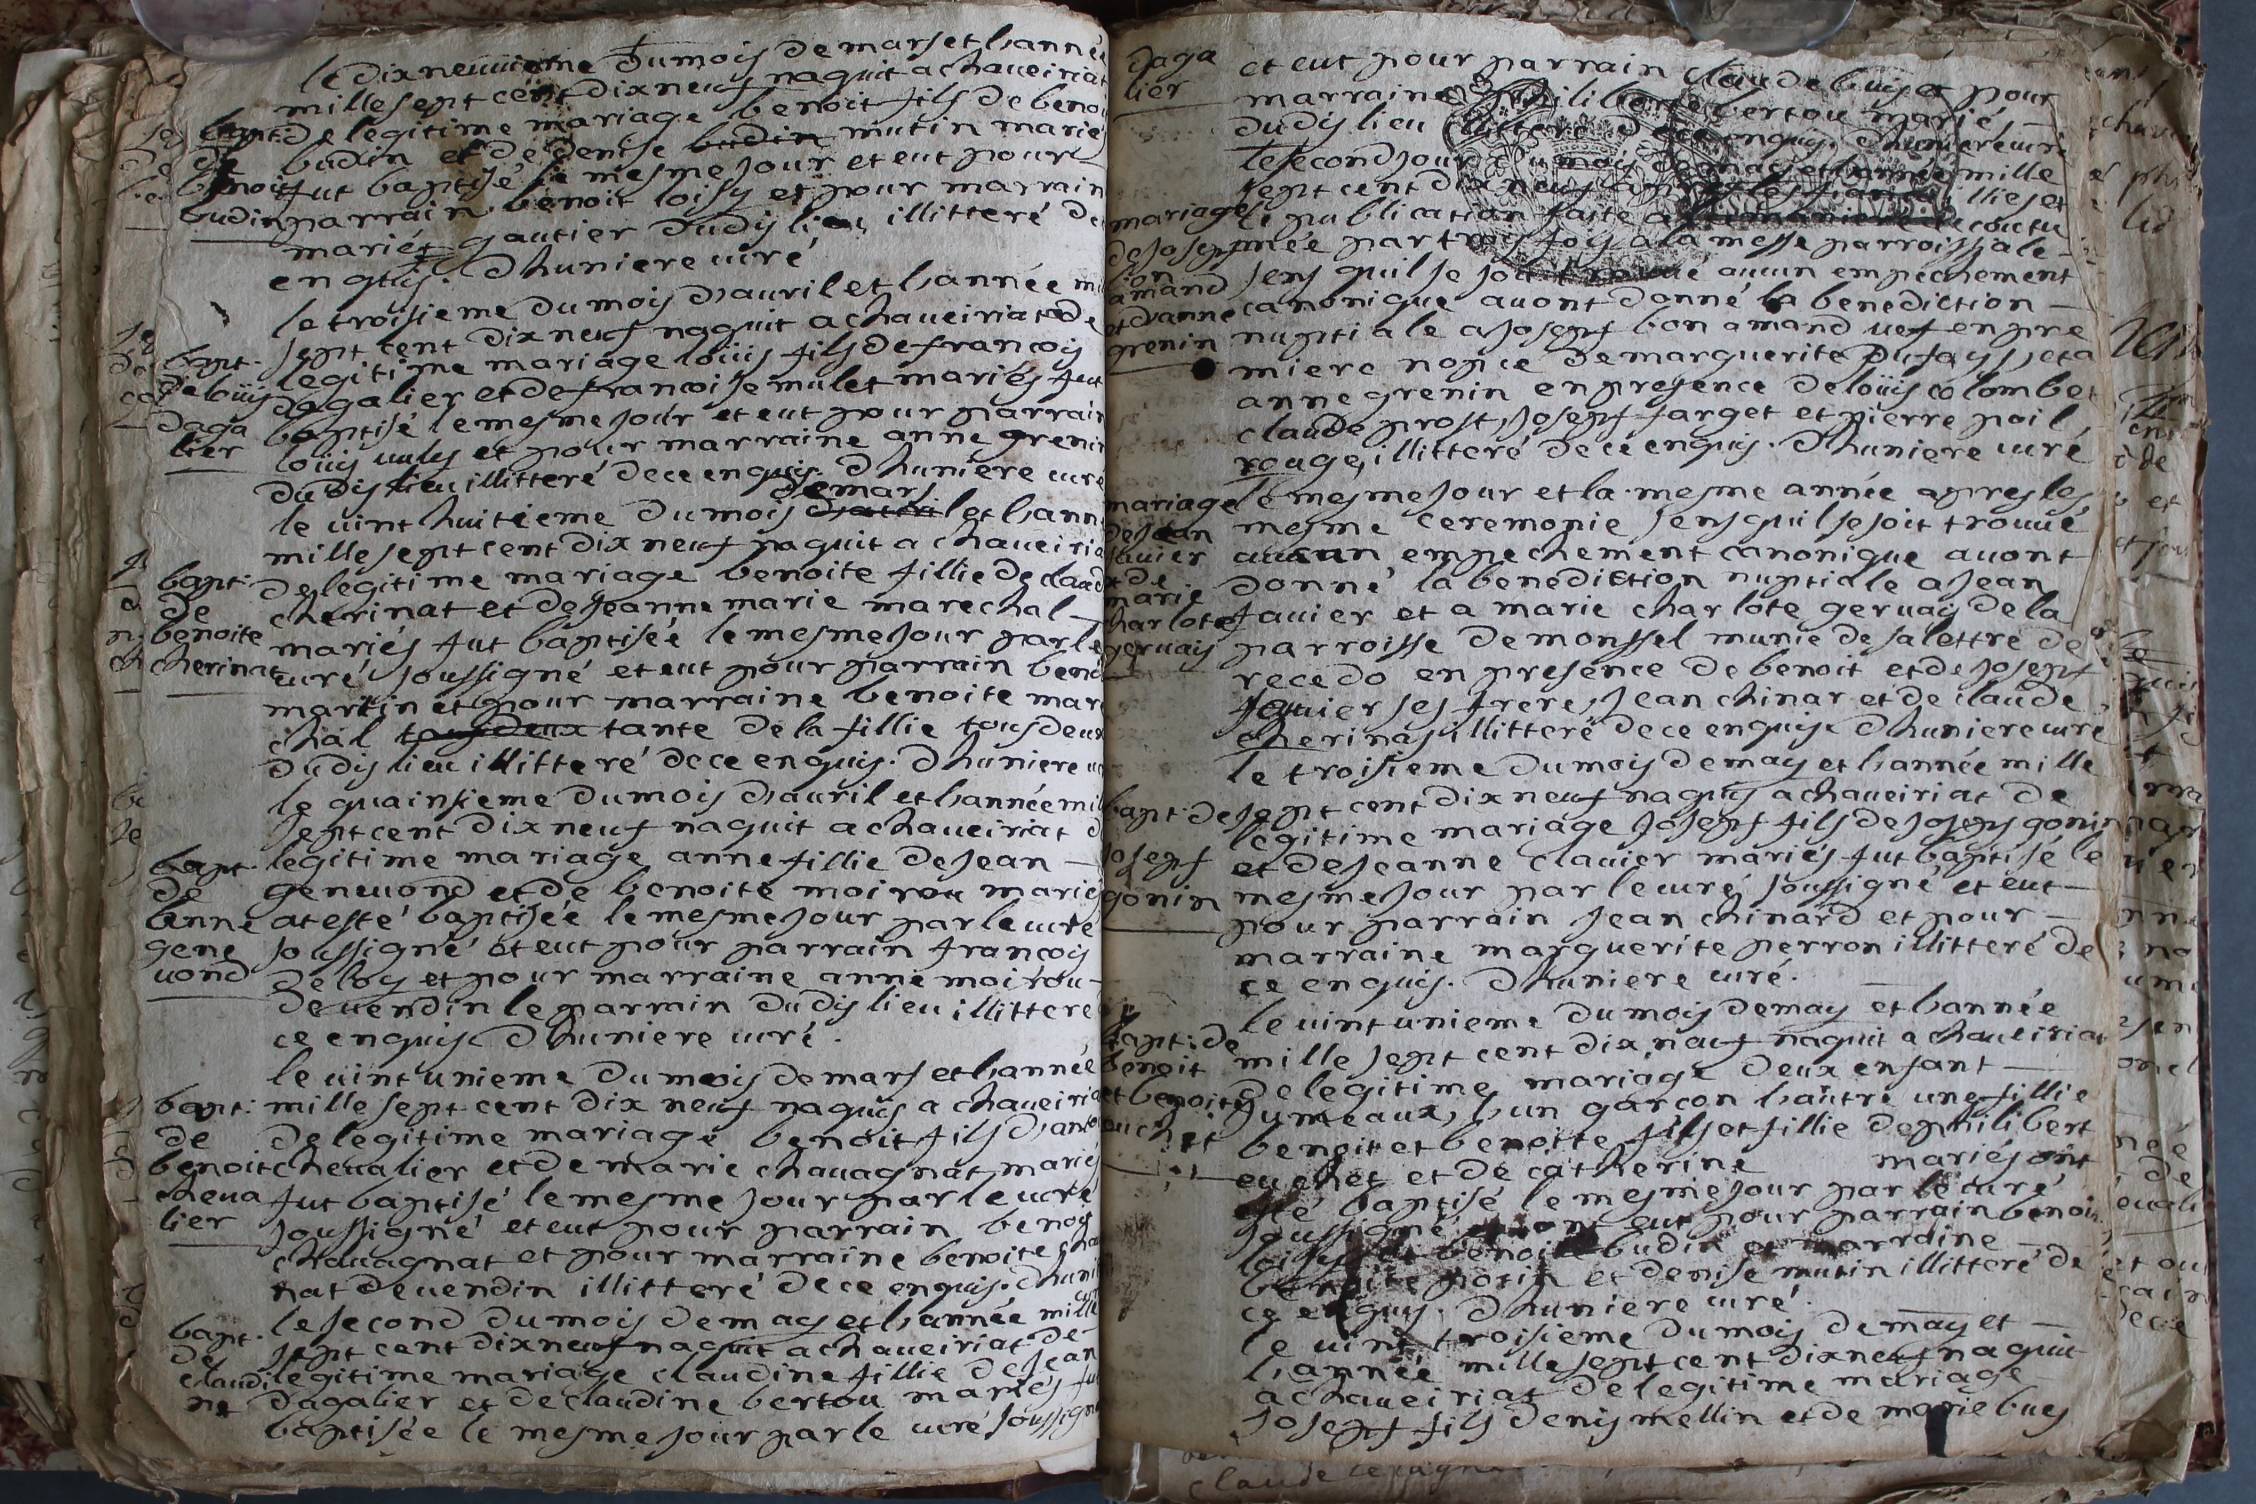 le dixneuuieme du mois de mars et l'année
mille sept cent dix neuf naquit a chaueiriat
bapt. de legitime mariage benoit fils de benoi
de budin et de denise budin mutin mariés
benoit fut baptisé le mesme jour et eut pour
budin parrain benoit loisy et pour marrain
mariét gautier dudis lieu illitteré de
enquis. Dhuniere curé
le troisieme du mois d'auril et l'année mi
sept cent dix neuf naquit a chaueiriat de
bapt. legitime mariage loüis fils de francois
de loüis dagalier et de francoise mulet mariés fut
daga baptisé le mesme jour et eut pour parrain
lier loüis uules et pour marraine anne grenin
dudis lieu illitteré de ce enquis. Dhuniere curé
de mars
le uint huitieme du mois d'auril et l'ann
mille sept cent dix neuf naquit a chaueiria
bapt. de legitime mariage benoite fillie de claud
de cherinat et de Jeanne marie marechal
benoite mariés fut baptisée le mesme jour par le
cherinat curé soussigné et eut pour parrain beno
martin et pour marraine benoite mare
chal tous deux tante de la fillie tous deux
dudis lieu illitteré de ce enquis. Dhuniere cu
le quainsieme du mois d'auril et l'année mil
sept cent dix neuf naquit a chaueiriat d
bapt. legitime mariage anne fillie de Jean
de geneuond et de benoite moirou mariés
anne at esté baptisée le mesme jour par le curé
gene soussigné et eut pour parrain francois
uond deloy et pour marraine anne moirou
de uendin le parrain dudis lieu illitteré
ce enquis Dhuniere curé.
le uint unieme du mois de mars et l'année
bapt: mille sept cent dix neuf naquis a chaueiria
de de legitime mariage benoit fils d'anto
benoit cheualier et de marie chauagnat mariés
cheua fut baptisé le mesme jour par le curé
lier soussigné et eut pour parrain benois
chauagnat et pour marraine benoite cha
nat de uendin illitteré de ce enquis. Dhuni
le second du mois de may et l'année mille
bapt. sept cent dix neuf naquit a chaueiriat de
de legitime mariage claudine fillie de Jean
claudi dagalier et de claudine bertou mariés fu
ne baptisée le mesme jour par le curé soussigné
daga et eut pour parrain claude buis et pour
lier marraine philiberte bertou marié
dudis lieu illitteré de ce enquis. Dhuniere curé
le second jour du mois de may et l'année mille
sept cent dix neuf apres les fiansaillies et
mariage le publication faite a la maniere acoutu
de Josept mée par trois fois a la messe parroissiale
bon sens quil se soit trouué aucun empechement
amand canonique auont donné la benediction
et d'anne nuptiale a Josept bon amand uef en pre
grenin miere nopce de marguerite dufay et a
anne grenin en presence de loüis colombet
claude prost, Josept farget et pierre poil
rouge, illitteré de ce enquis. Dhuniere curé
mariage le mesme jour et la mesme année apres les
de Jean mesme ceremonie sens quil se soit trouué
fauier aucun empechement canonique auont
et de donné la benediction nuptiale a Jean
marie fauier et a marie charlote geruais de la
charlote parroisse de monssel munie de sa lettre de
geruais recedo en presence de benoit et de Josept
fauier ses frere, Jean chinar et de claude
cherinas illitteré de ce enquis Dhuniere curé
le troisieme du mois de may et l'année mille
bapt: de sept cent dix neuf naquis a chaueiriat de
Josept legitime mariage Josept fils de Josept gonin
gonin et de Jeanne clauier mariés fut baptisé le
mesme jour par le curé soussigné et eut
pour parrain Jean chinard et pour
marraine marguerite perron illitteré de
ce enquis. Dhuniere curé.
le uint unieme du mois de may et l'année
bapt: de mille sept cent dix neuf naquit a chaueiriat
benoit de legitime mariage deux enfant
et benoite Jumeaux, l'un garcon l'autre une fillie
benoit et benoite fils et fillie de philibert
euchet et de catherine mariés ont
esté baptisé le mesme jour par le curé
soussigné et ont eut pour parrain benoit
loisy et benoit budin et marraine
benoite potin et denise mutin illitteré de
ce enquis. Dhuniere curé.
le uint troisieme du mois de may et
l'année mille sept cent dix neuf naquit
a chaueiriat de legitime mariage
Josept fils denis mellin et de marie buis